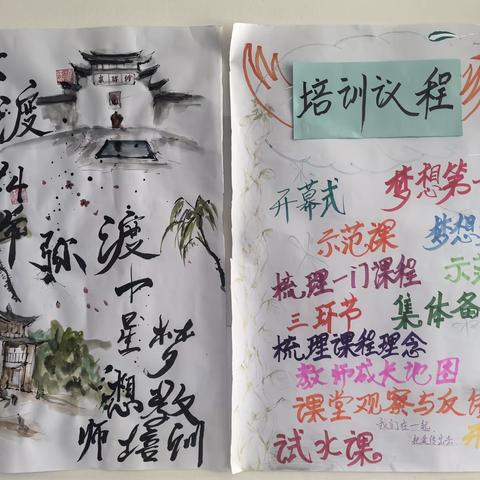 渡
24年
弥渡
星
梦想教
师培训
培训议程
开幕式 梦想第一
示范课 梦想
梳理一门课程 示范
三环节 集体备
梳理课程理念
教师成长地图
课堂观察与反馈
我们在一起
试水课 开